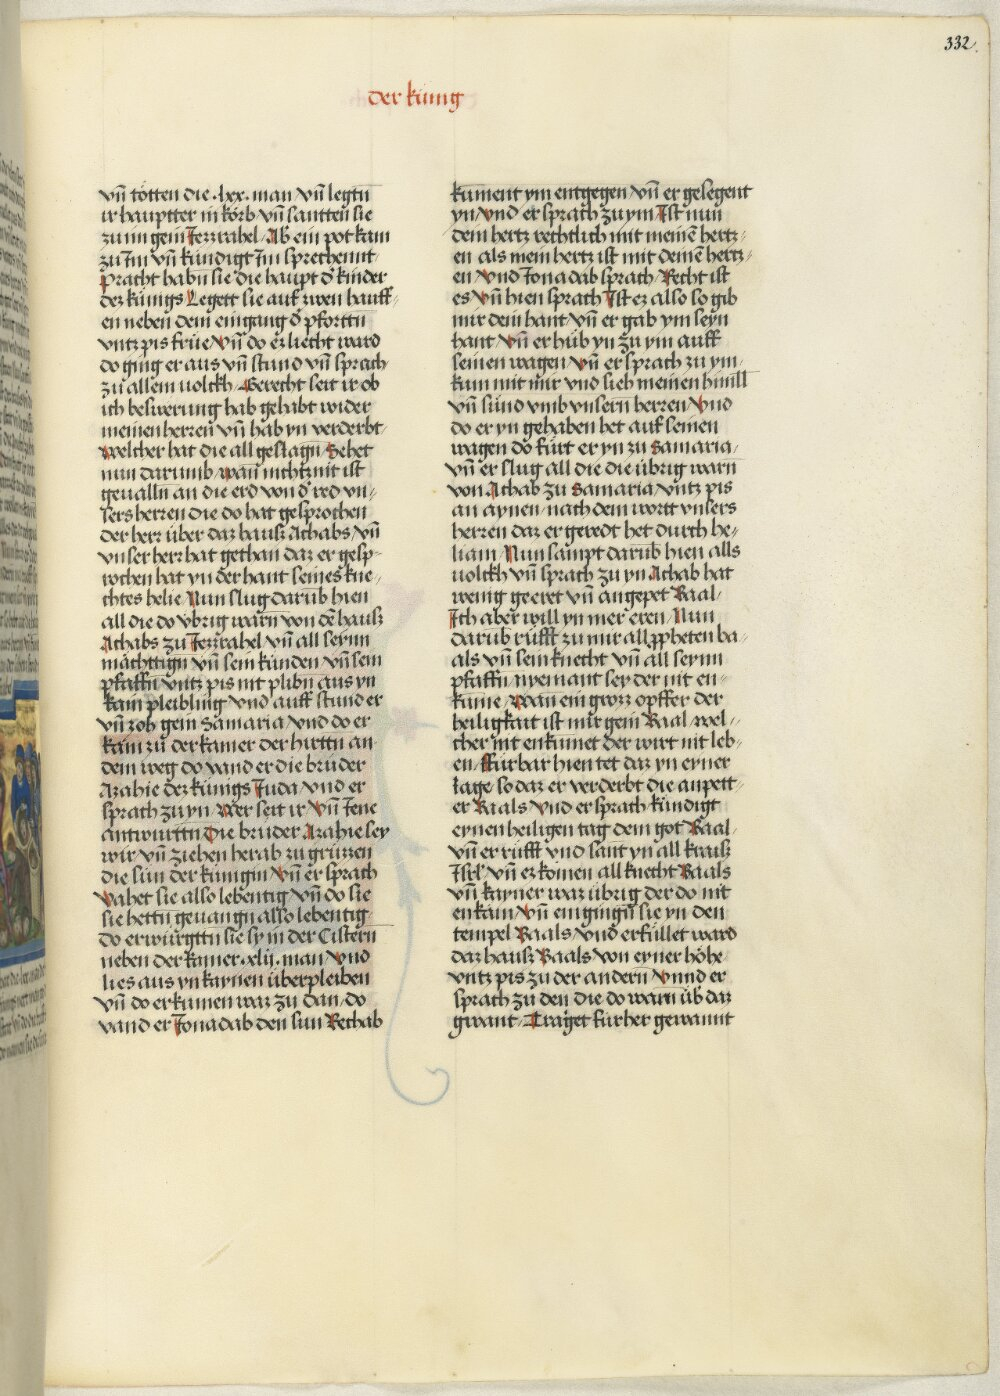 332
der kunig
vn̄ totten die .lxx. man vn̄ legtn̄
ir hauptter in korb vn̄ santten sie
zu im gein Jezrahel Ab ein pot kam
zu Im vn̄ kundigt Im sprechennt
Pracht habn̄ sie die haupt d̕ kinder
dez kunigs Legett sie auf zwen hauff-
en neben dem eingang d̕ pforttn̄
vntz pis frue Vn̄ do ez liecht ward
do ging er aus vn̄ stund vn̄ sprach
zu allem uolckh Gerecht seit ir ob
ich beswerung hab gehabt wider
meinen herren vn̄ hab yn verderbt
Welcher hat die all geslagn̄ Sehet
nun darumb wan̄ nichtznit ist
geualln̄ an die erd von d̕ red vn-
sers herren die do hat gesprochen
der herr über daz hausz Achabs vn̄
vnser herr hat gethan daz er gesp-
rochen hat yn der hant seines kne-
chtes helie Nun slug darüb hien
all die do vbrig warn von dē hausz
Achabs zu Jezrahel vn̄ all seynn
māchttign̄ vn̄ sein kunden vn̄ sein
pfaffn̄ vntz pis nit plibn̄ aus yn
kain pleibling Vnd auff stund er
vn̄ zoh gein Samaria vnd do er
kam zu der kamer der hirttn an
dem weg do vand er die bruder
Azahie dez kunigs Juda vnd er
sprach zu yn Wer seit ir Vn̄ Jene
antwurttn̄ Die bruder Azahie sey
wir vn̄ ziehen herab zu gruzzen
die sun der kunigin Vn̄ er sprach
Vahet sie also lebentig Vn̄ do sie
sie hettn̄ geuangn̄ also lebentig
do erwurgttn̄ sie sy in der Cistern
neben der kamer .xlij. man Vnd
lies aus yn kaynen überpleiben
vn̄ do er kumen waz zu dan do
vand er Jonadab den sun Rechab
kument ym entgegen vn̄ er gesegent
yn Vnd er sprach zu ym Ist nun
dem hertz rechtlich mit meinē hertz-
en als mein hertz ist mit deinē hertz-
en Vnd Jonadab sprach Recht ist
es Vn̄ hien sprach Ist ez also so gib
mir dein hant Vn̄ er gab ym seyn
hant Vn̄ er hüb yn zu ym auff
seinen wagen Vn̄ er sprach zu ym
kum mit mir vnd sieh meinen hinll
vn̄ sünd vmb vnsern herren Vnd
do er yn gehaben het auf seinen
wagen do fürt er yn zu Samaria
vn̄ er slug all die die übrig warn
von Achab zu Samaria vntz pis
an aynen nach dem wortt vnsers
herren daz er geredt het durch he-
liam Nun sampt darüb hien alls
uolckh vn̄ sprach zu yn Achab hat
wenig geeret vn̄ angepet Baal
Ich aber will yn mer eren Nun
darüb rüfft zu mir all ꝓpheten ba-
als vn̄ sein knecht vn̄ all seynn
pfaffn̄ nyemant sey der nit en-
kume Wan ein groz opffer der
heiligkait ist mir gein Baal wel-
cher nit enkumet der wirt nit leb-
en Fürbar hien tet daz yn eyner
lage so daz er verderbt die anpett-
er Baals Vnd er sprach kündigt
eynen heiligen tag dem got Baal
vn̄ er rüfft vnd sant yn all kraisz
Isrl̄ vn̄ ez komen all knecht Baals
vn̄ kayner waz übrig der do nit
enkam Vn̄ ein gingn̄ sie yn den
tempel Baals Vnd erfüllet ward
daz hausz Baals von eyner höhe
vntz pis zu der andern Vnnd er
sprach zu den die do warn üb̕ daz
gwant Traget fürher gewannt